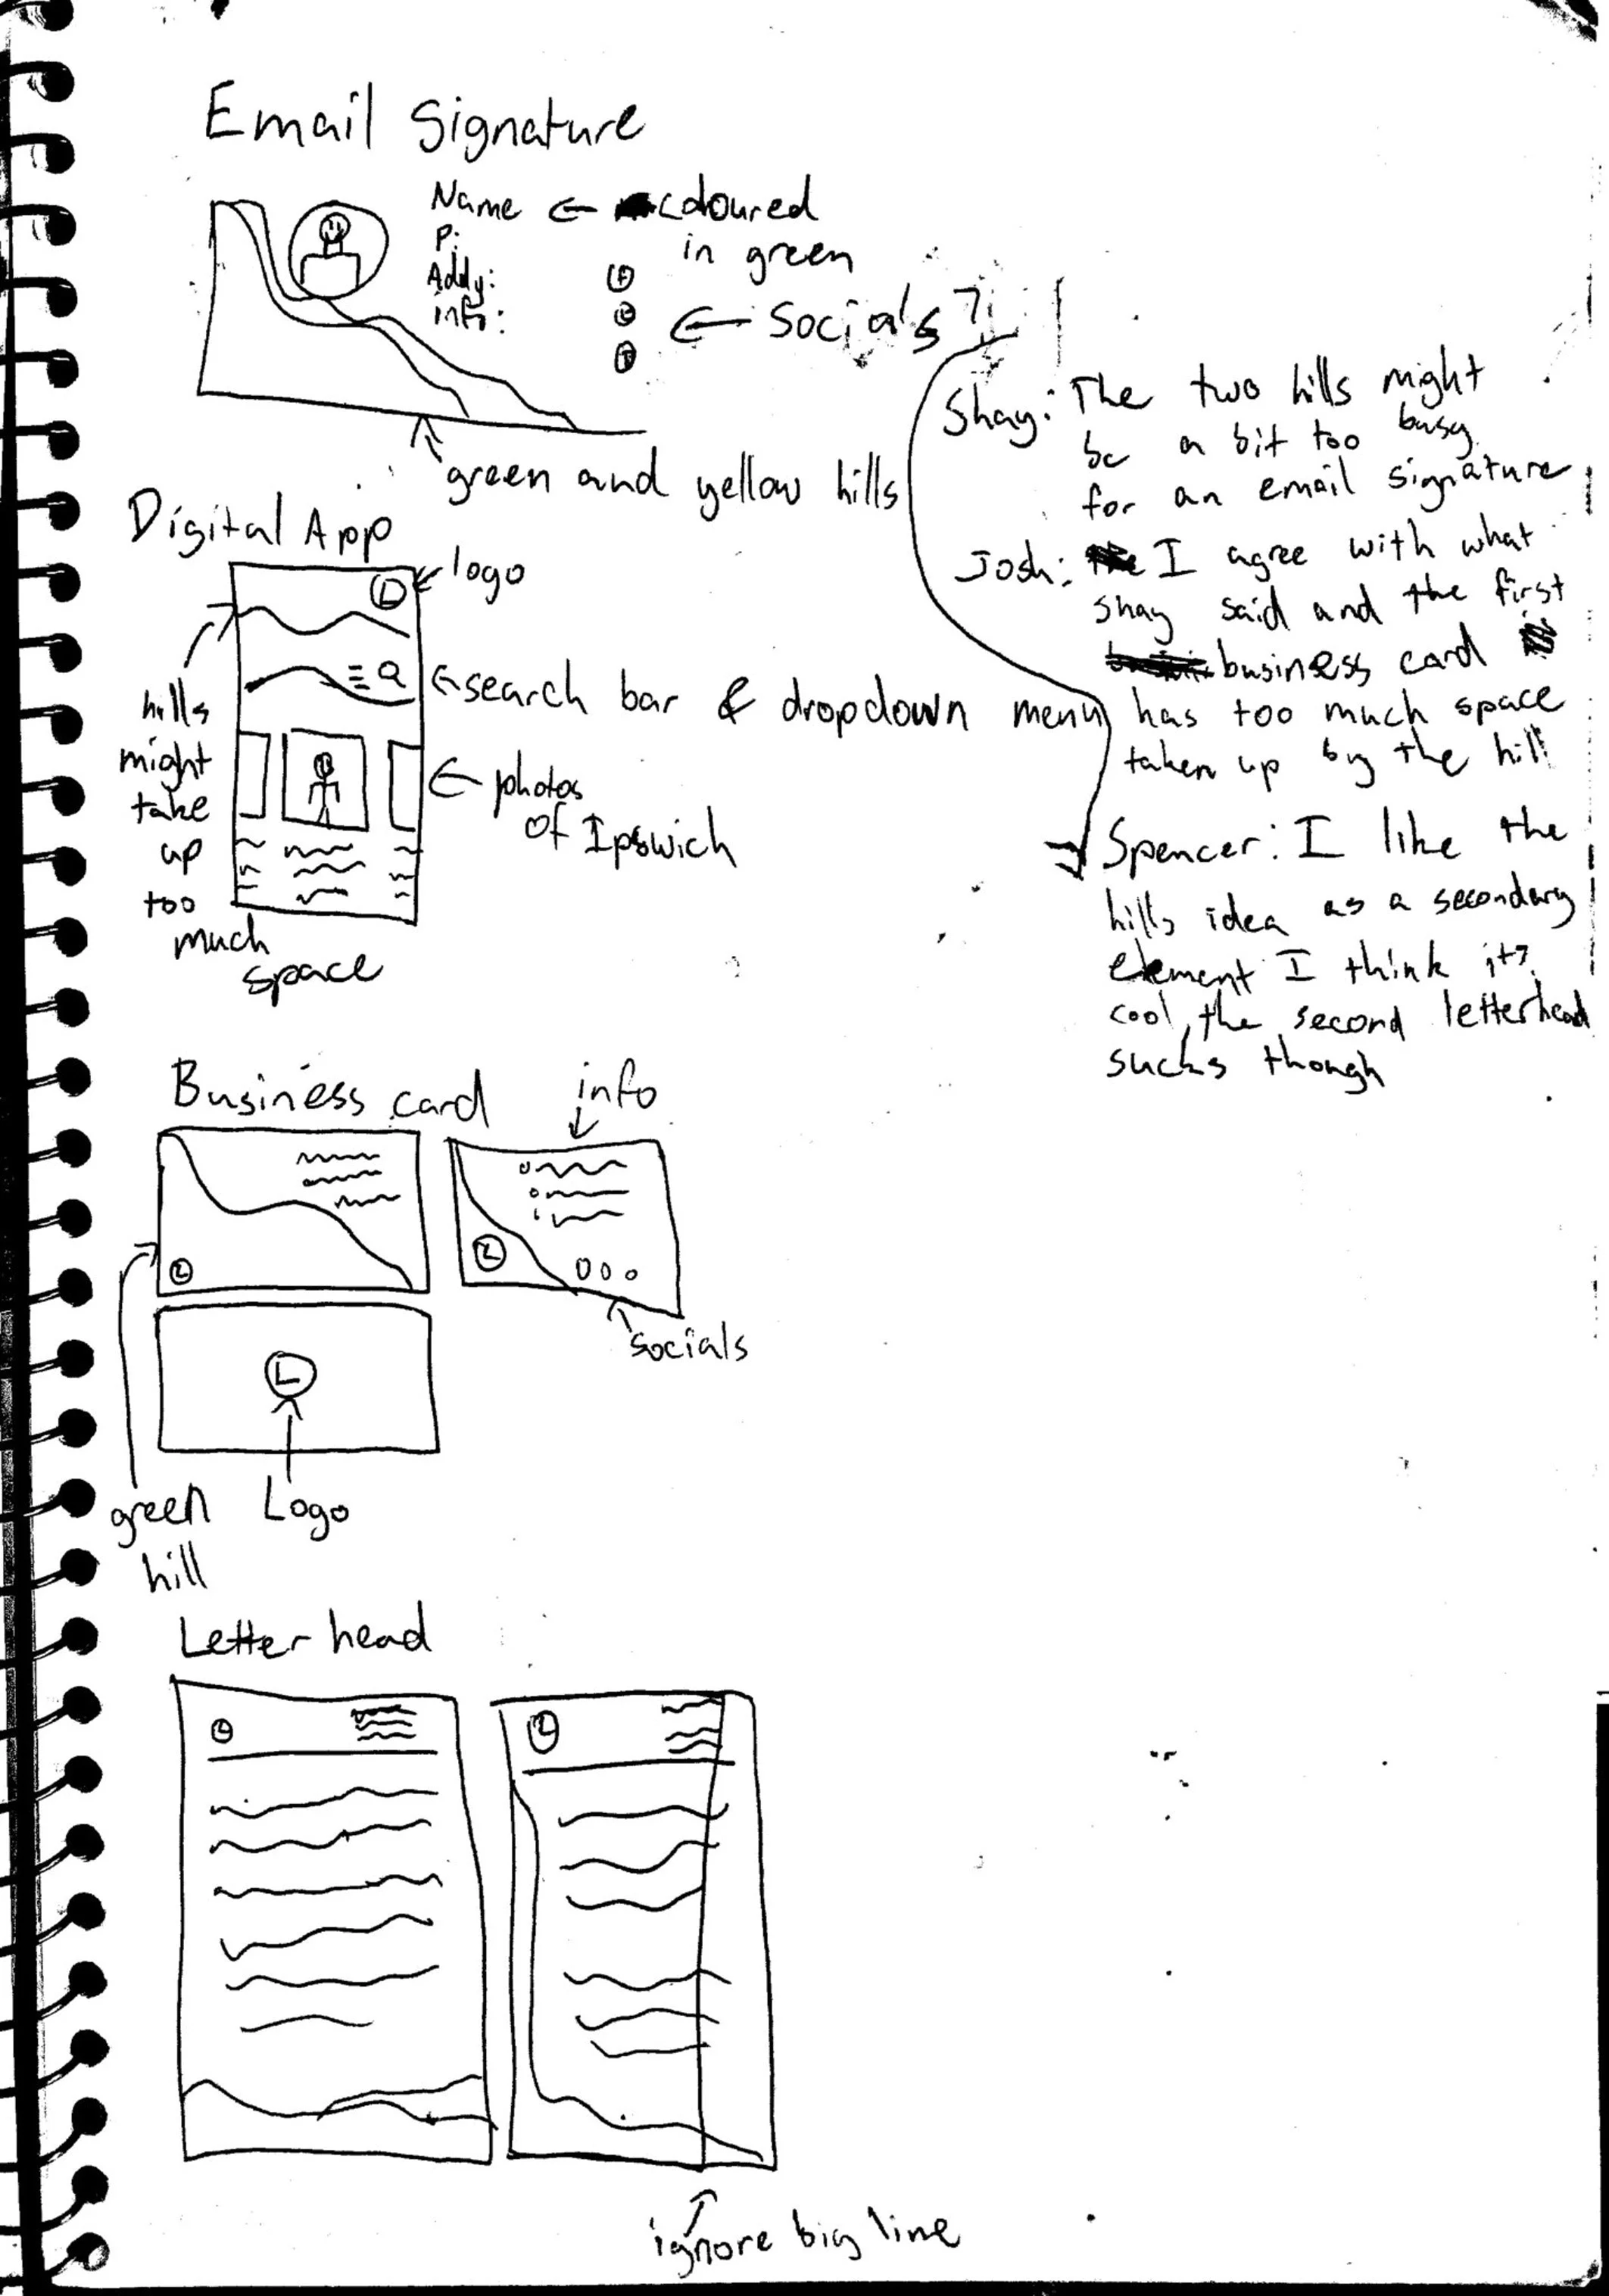 Email Signature
Name ← coloured
in green
P:
Addy:
info:
Socials?
green and yellow hills
Shay: The two hills might
be a bit too busy
for an email signature
Josh: I agree with what
shay said and the first
business card
has too much space
taken up by the hill
Spencer: I like the
hills idea as a secondary
element I think its
cool, the second letterhead
sucks though
Digital App
L
logo
search bar & dropdown menu
photos
of Ipswich
hills
might
take
up
too
much
space
Business card
info
L
L
socials
L
green
hill
Logo
Letter head
L
L
ignore big line